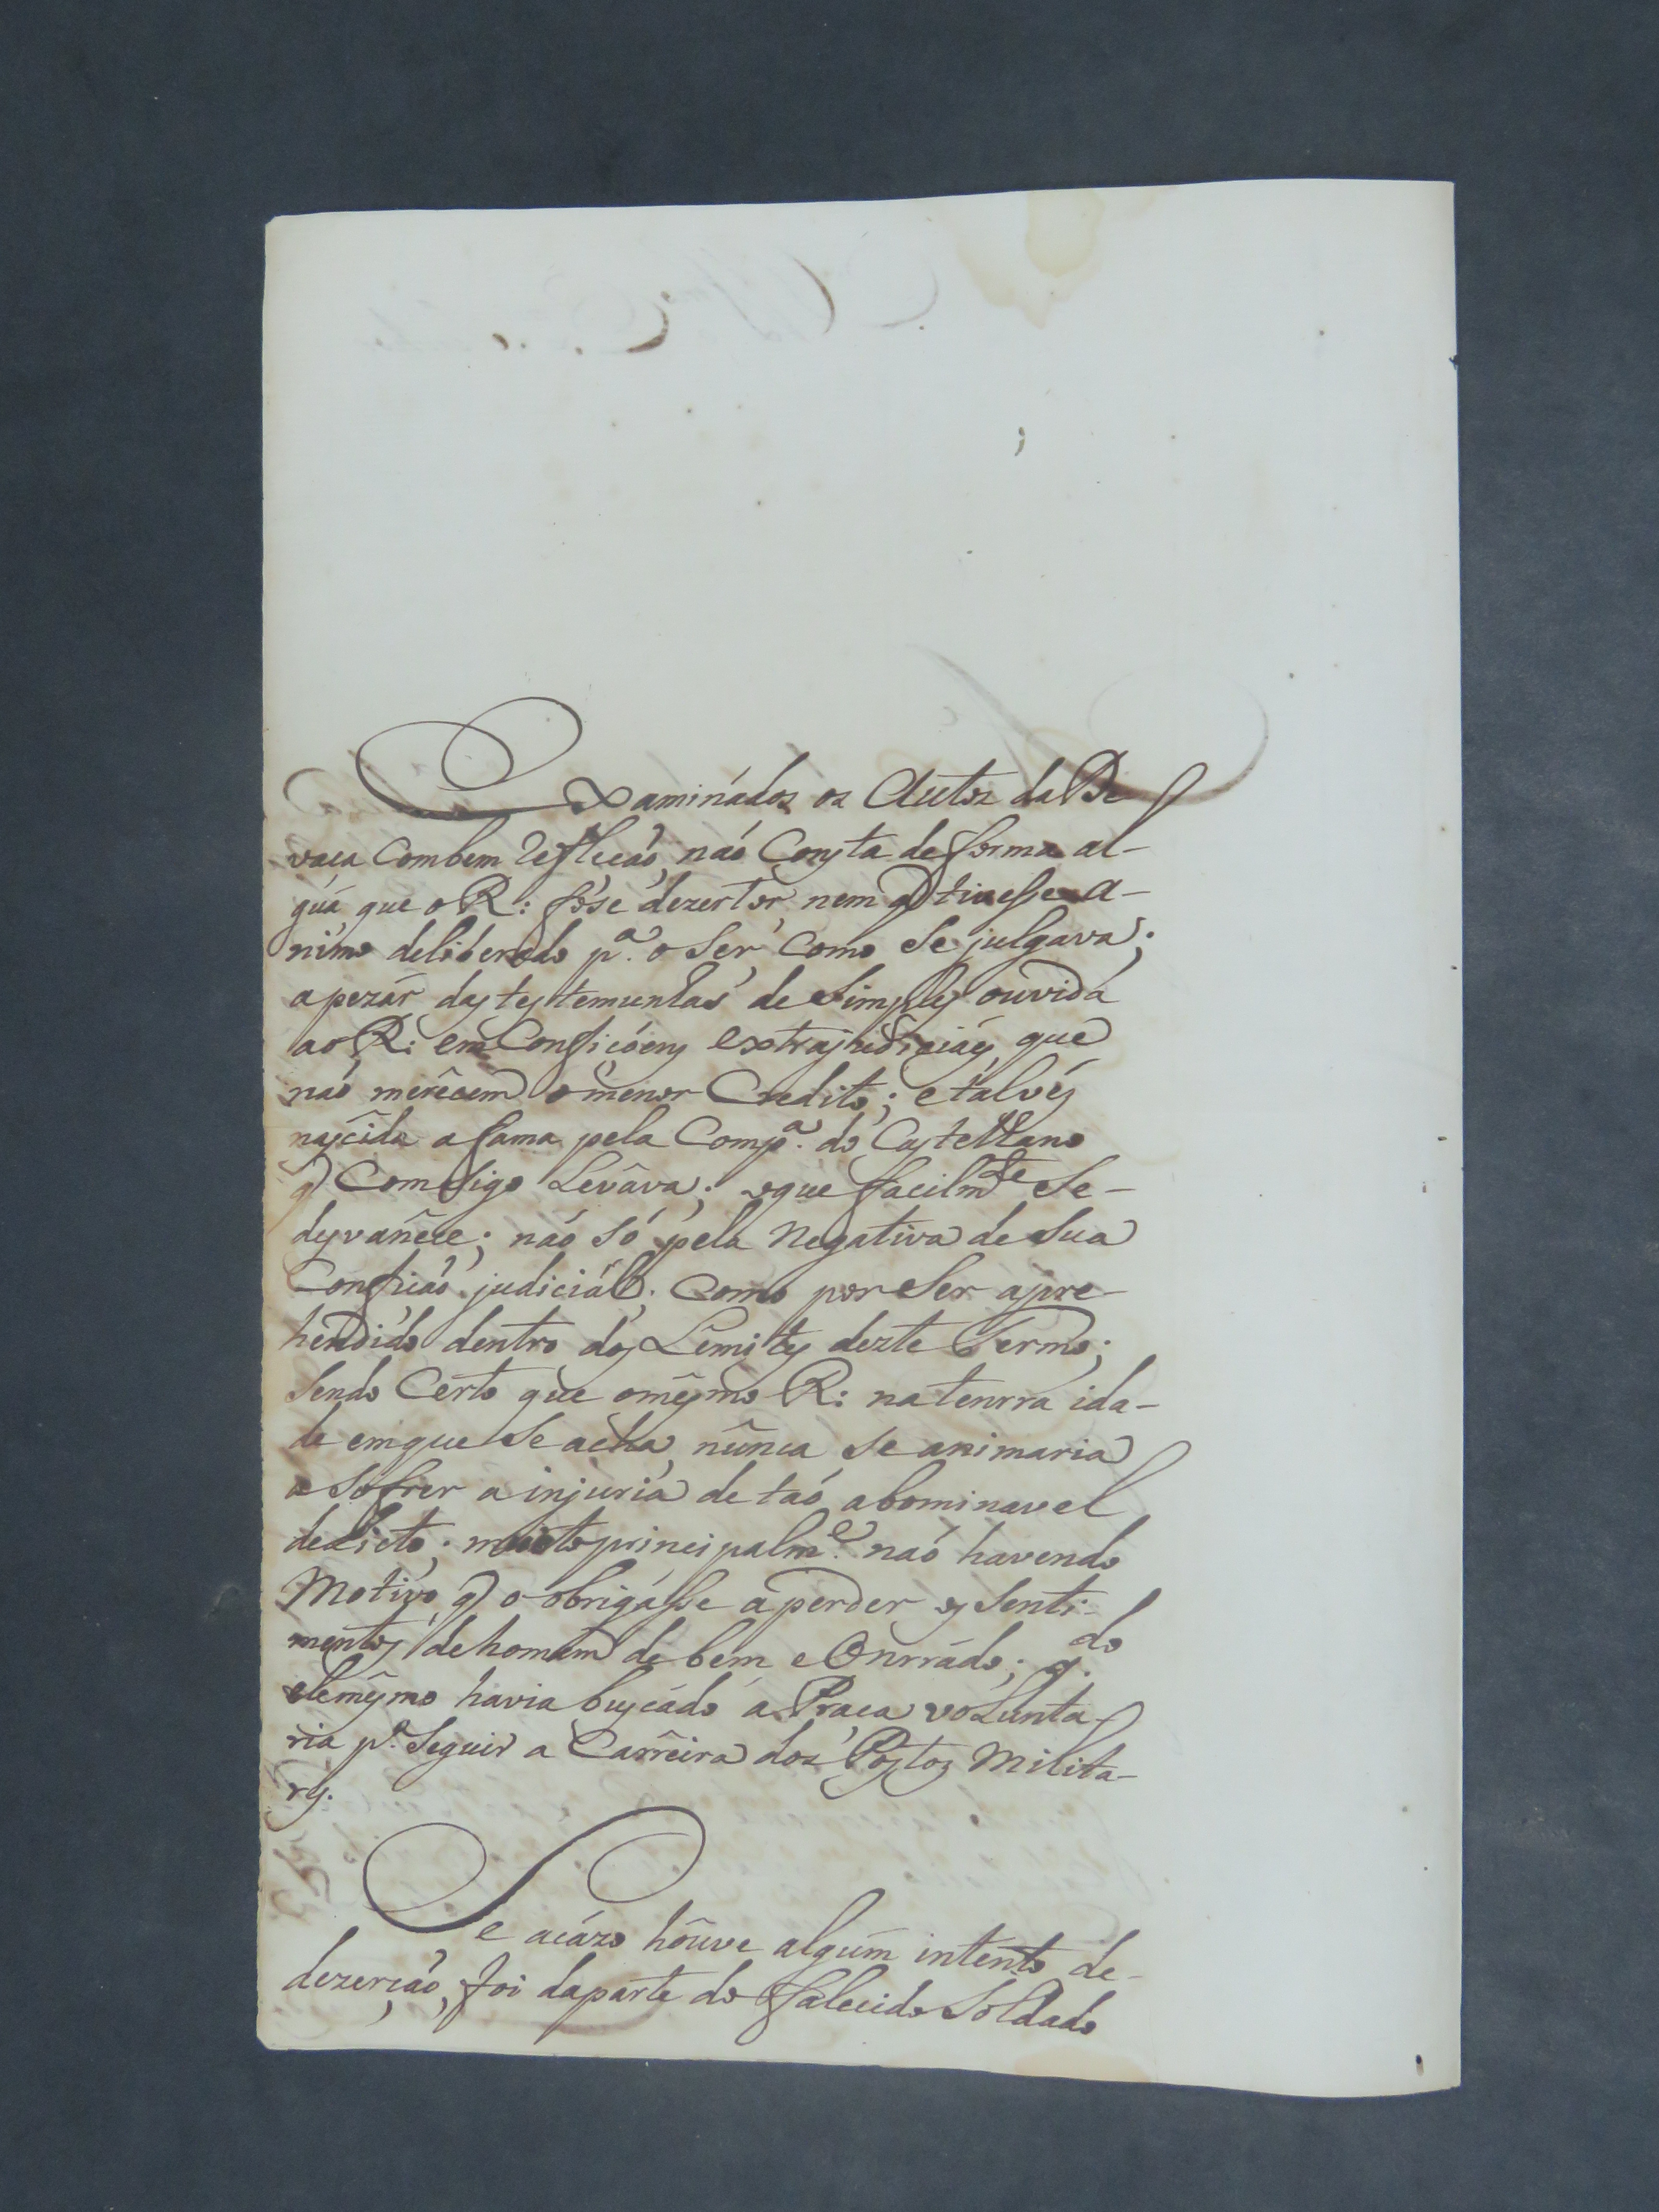 Examinádos os Autos da De
vaça Combem Refleçaõ, naõ Consta de forma al-
guã que o R: fôse dezertor, nem q̃ tivesse a-
nimo deliberado p.ª o Ser Como Se julgava;
apezár das testemunhas de Simples ouvida
ao R: em Confiçóens Extrajudiciáes, que
naõ merêcem omenor Credito; e talvés
nascida afama pela Comp.ª do Castelhano
q̃ Comsigo Levâva; oque facilm.te Se-
desvanêce; naõ Só pela Negativa de Sua
Confiçaõ judiciál; Como por Ser apre-
hendido dentro dos Lêmites dezte Termo;
Sendo Certo que omêsmo R: natenrra ida-
de emque Se acha, nûnca Se animaria
a Sofrer a injuria de taõ abominavel
delicto; muito principalm.e naõ havendo
Motivo q̃ o obrigásse aperder os Senti-
mentos de homem de bem e Onrrádo; q.do
elemêsmo havia buscádo a Praça voLunta-
ria p.ª Seguir a Carrêira dos Postos Milita-
res.
Se acázo hôuve algúm intento de-
dezerçaõ, foi daparte do falecido Soldado